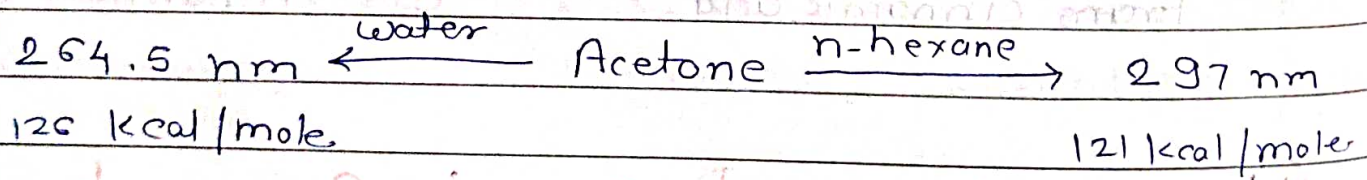 264.5 nm ← water Acetone n-hexane → 297 nm
126 kcal/mole. 121 kcal/mole.